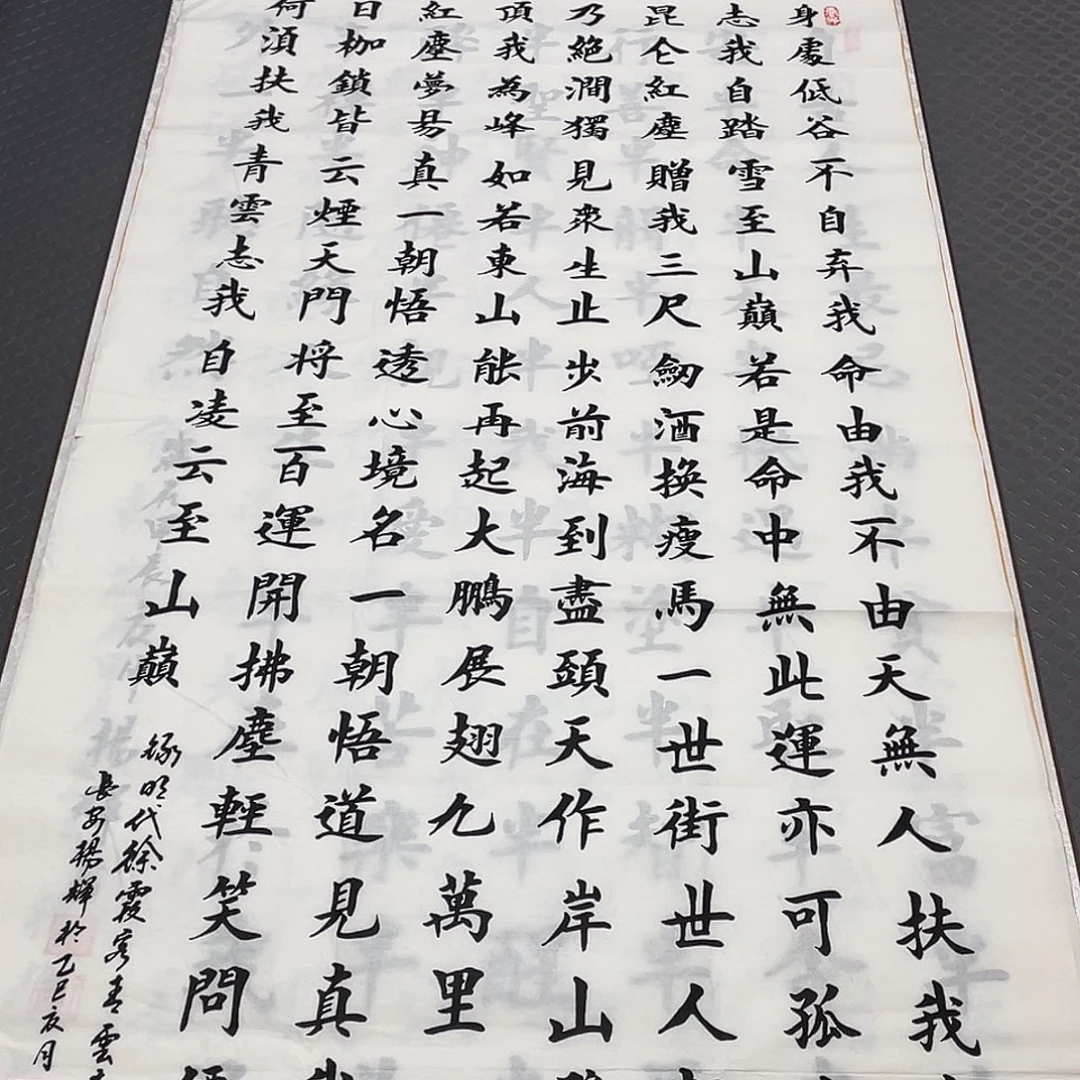 身處低谷不自弃我命由我不由天無人扶我
志我自踏雪至山巔若是命中無此運亦可孤
昆仑紅塵贈我三尺劒酒換瘦馬一世街世人
乃絕澗獨見衆生止步前海到盡頭天作岸山
頂我為峰如若東山能再起大鵬展翅九萬里
紅塵夢易真一朝悟透心境名一朝悟道見真我
日枷鎖皆云煙天門将至一百運開拂塵輕笑問
何湏扶我青雲志我自凌云至山巔
錄明代徐霞客青雲志
長安楊輝於乙巳亥月